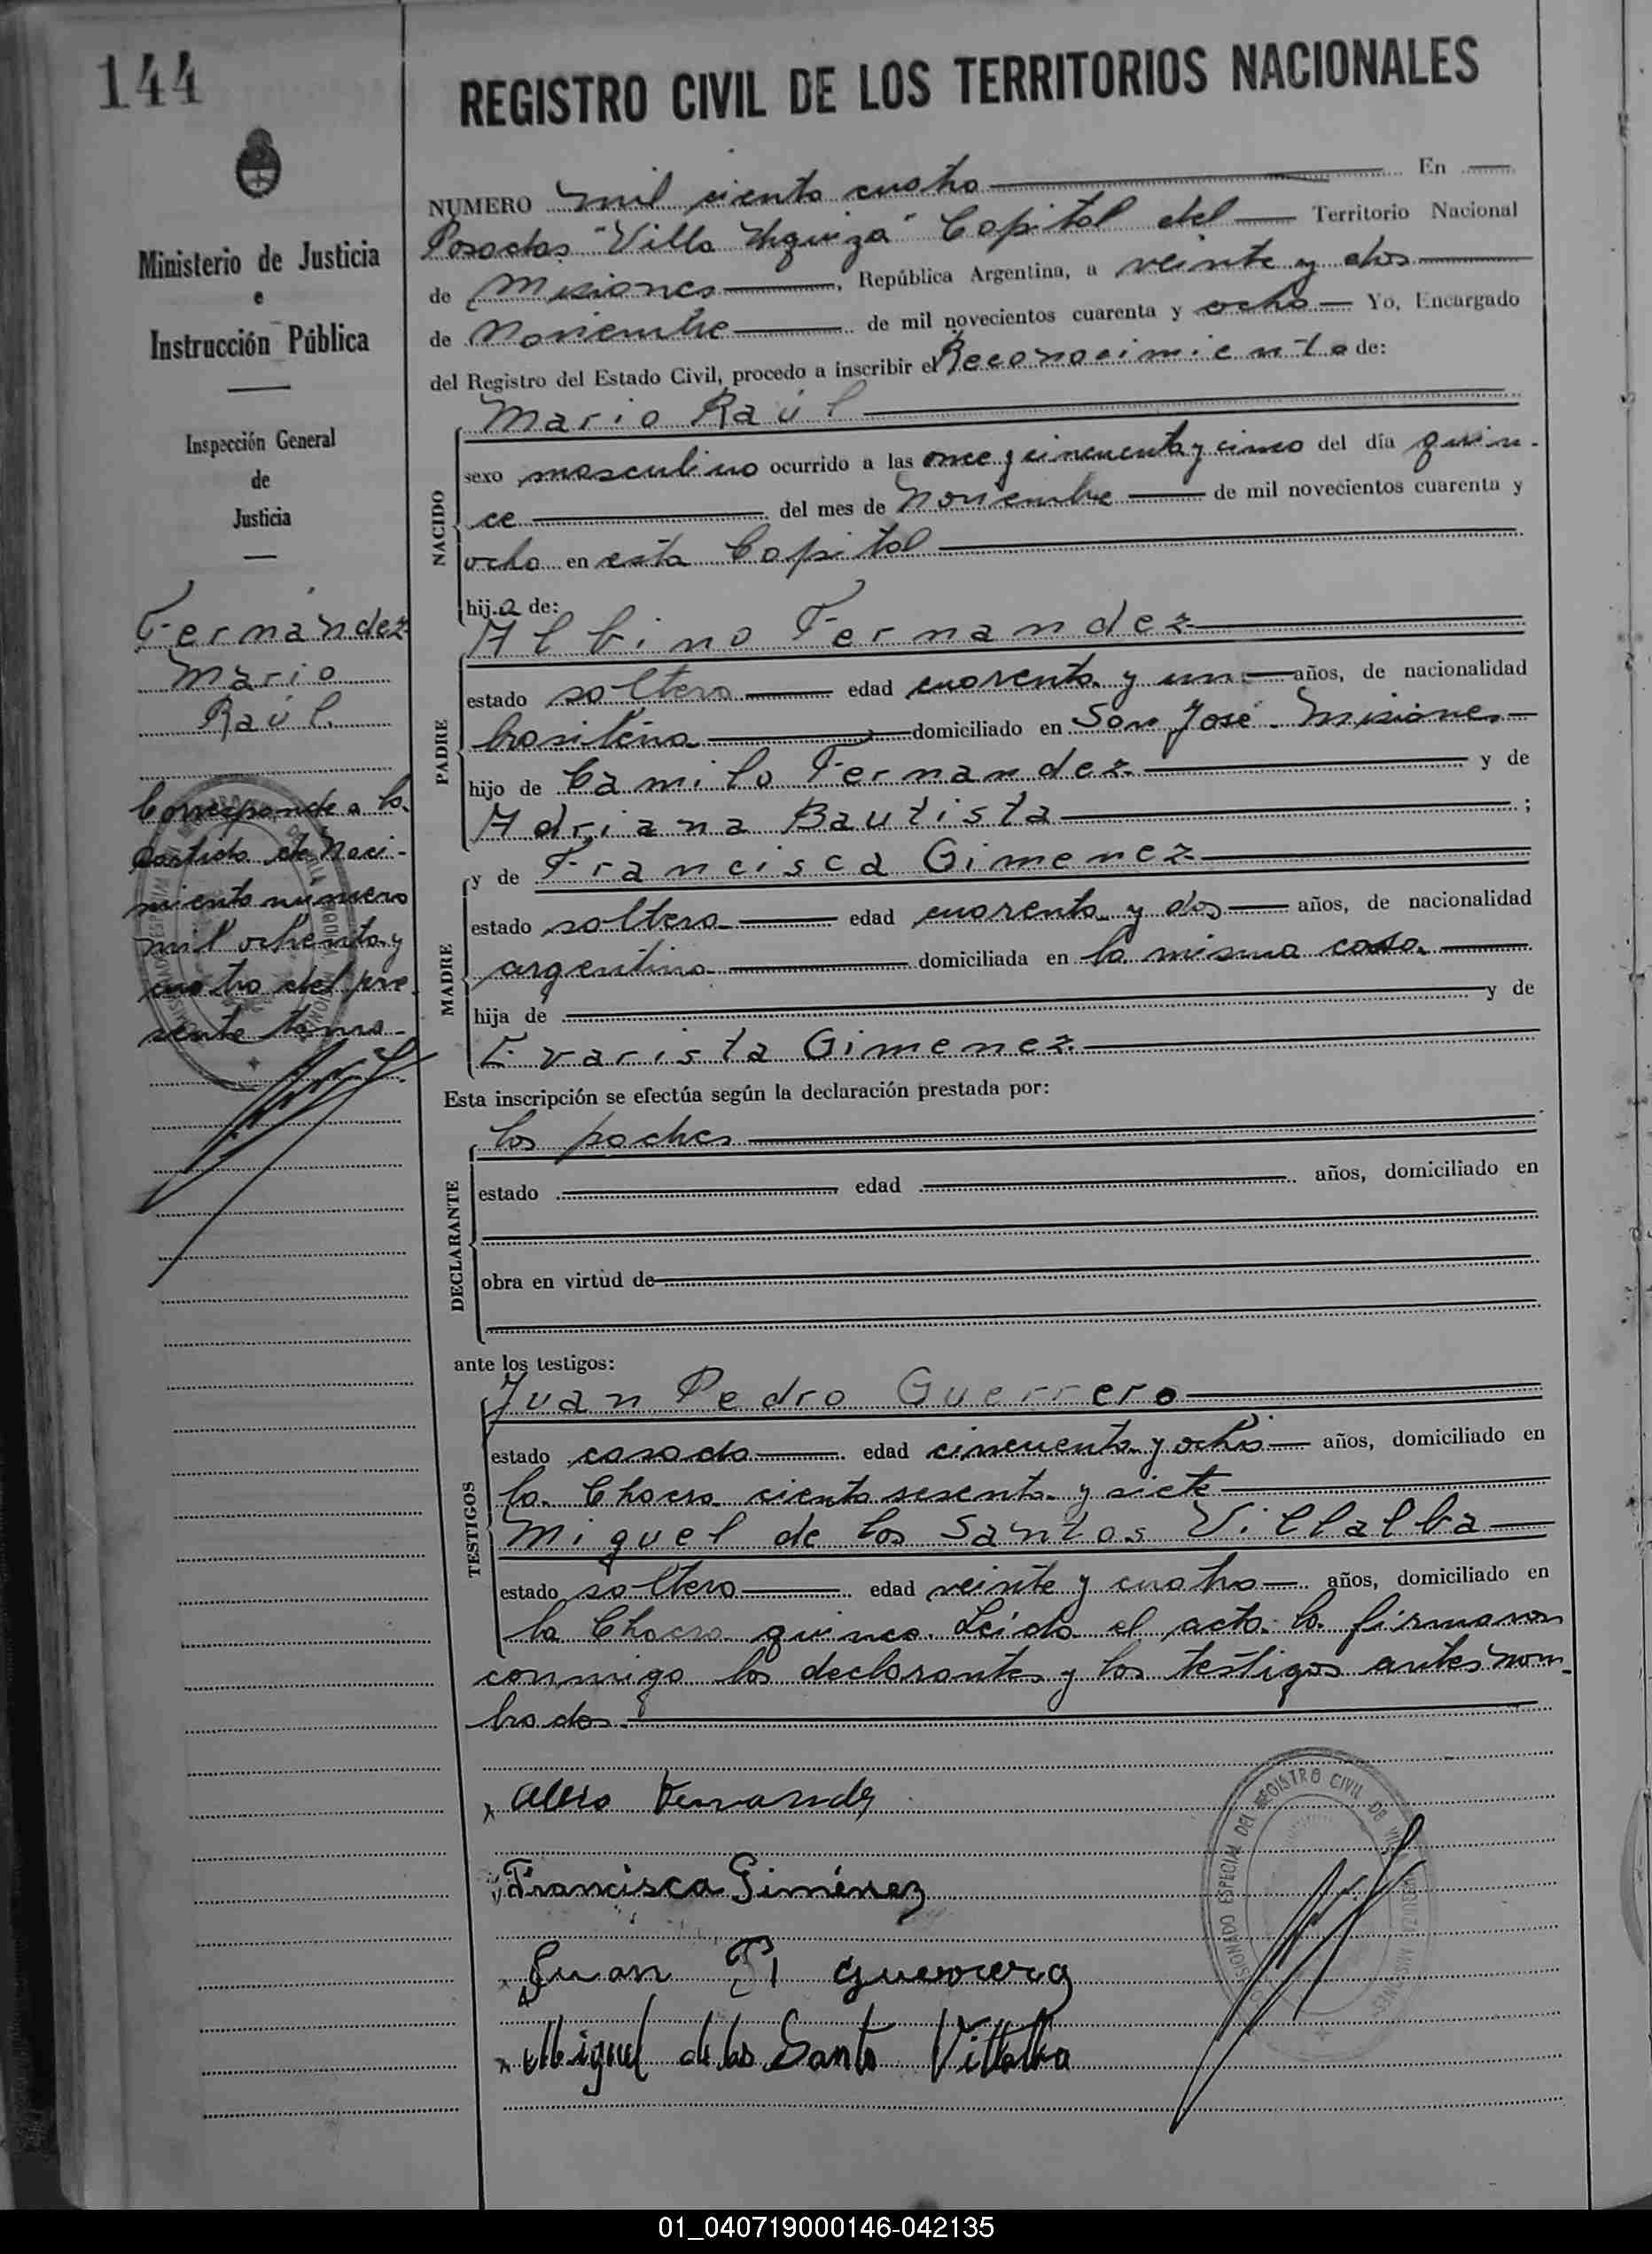 144
REGISTRO CIVIL DE LOS TERRITORIOS NACIONALES
Ministerio de Justicia
e
Instrucción Pública
Inspección General
de
Justicia
Fernández
Mario
Raúl
Corresponde a la
partida de Naci-
miento número
mil ochenta y
cuatro del pre
sente tomo-
NUMERO mil ciento cuatro En
Posadas "Villa Urquiza" Capital del Territorio Nacional
de Misiones, República Argentina, a veinte y dos
de Noviembre de mil novecientos cuarenta y ocho Yo, Encargado
del Registro del Estado Civil, procedo a inscribir el Reconocimiento de:
Mario Raúl
NACIDO
sexo masculino ocurrido a las once y cincuenta y cinco del día quin-
ce del mes de Noviembre de mil novecientos cuarenta y
ocho en esta Capital
hijo de:
PADRE
Albino Fernandez
estado soltero edad cuarenta y un años, de nacionalidad
brasileña domiciliado en San José - Misiones
hijo de Camilo Fernandez y de
Adriana Bautista ;
MADRE
y de Francisca Gimenez
estado soltera edad cuarenta y dos años, de nacionalidad
argentina domiciliada en la misma casa
hija de y de
Evarista Gimenez
Esta inscripción se efectúa según la declaración prestada por:
DECLARANTE
los padres
estado edad años, domiciliado en
obra en virtud de
ante los testigos:
TESTIGOS
Juan Pedro Guerrero
estado casado edad cincuenta y ocho años, domiciliado en
la Chacra ciento sesenta y siete
Miguel de los Santos Villalba
estado soltero edad veinte y cuatro años, domiciliado en
la Chacra quince. Leída el acta la firmaron
conmigo los declarantes y los testigos antes nom-
brados.
Francisca Giménez
Juan P Guerrero
Miguel de los Santo Villalba
01_040719000146-042135